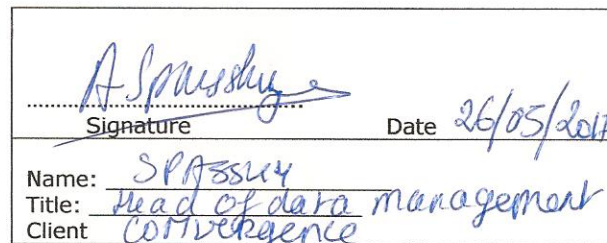 A Spassky
Signature Date 26/05/2017
Name: SPASSKY
Title: Head of data management
Client Comvergence